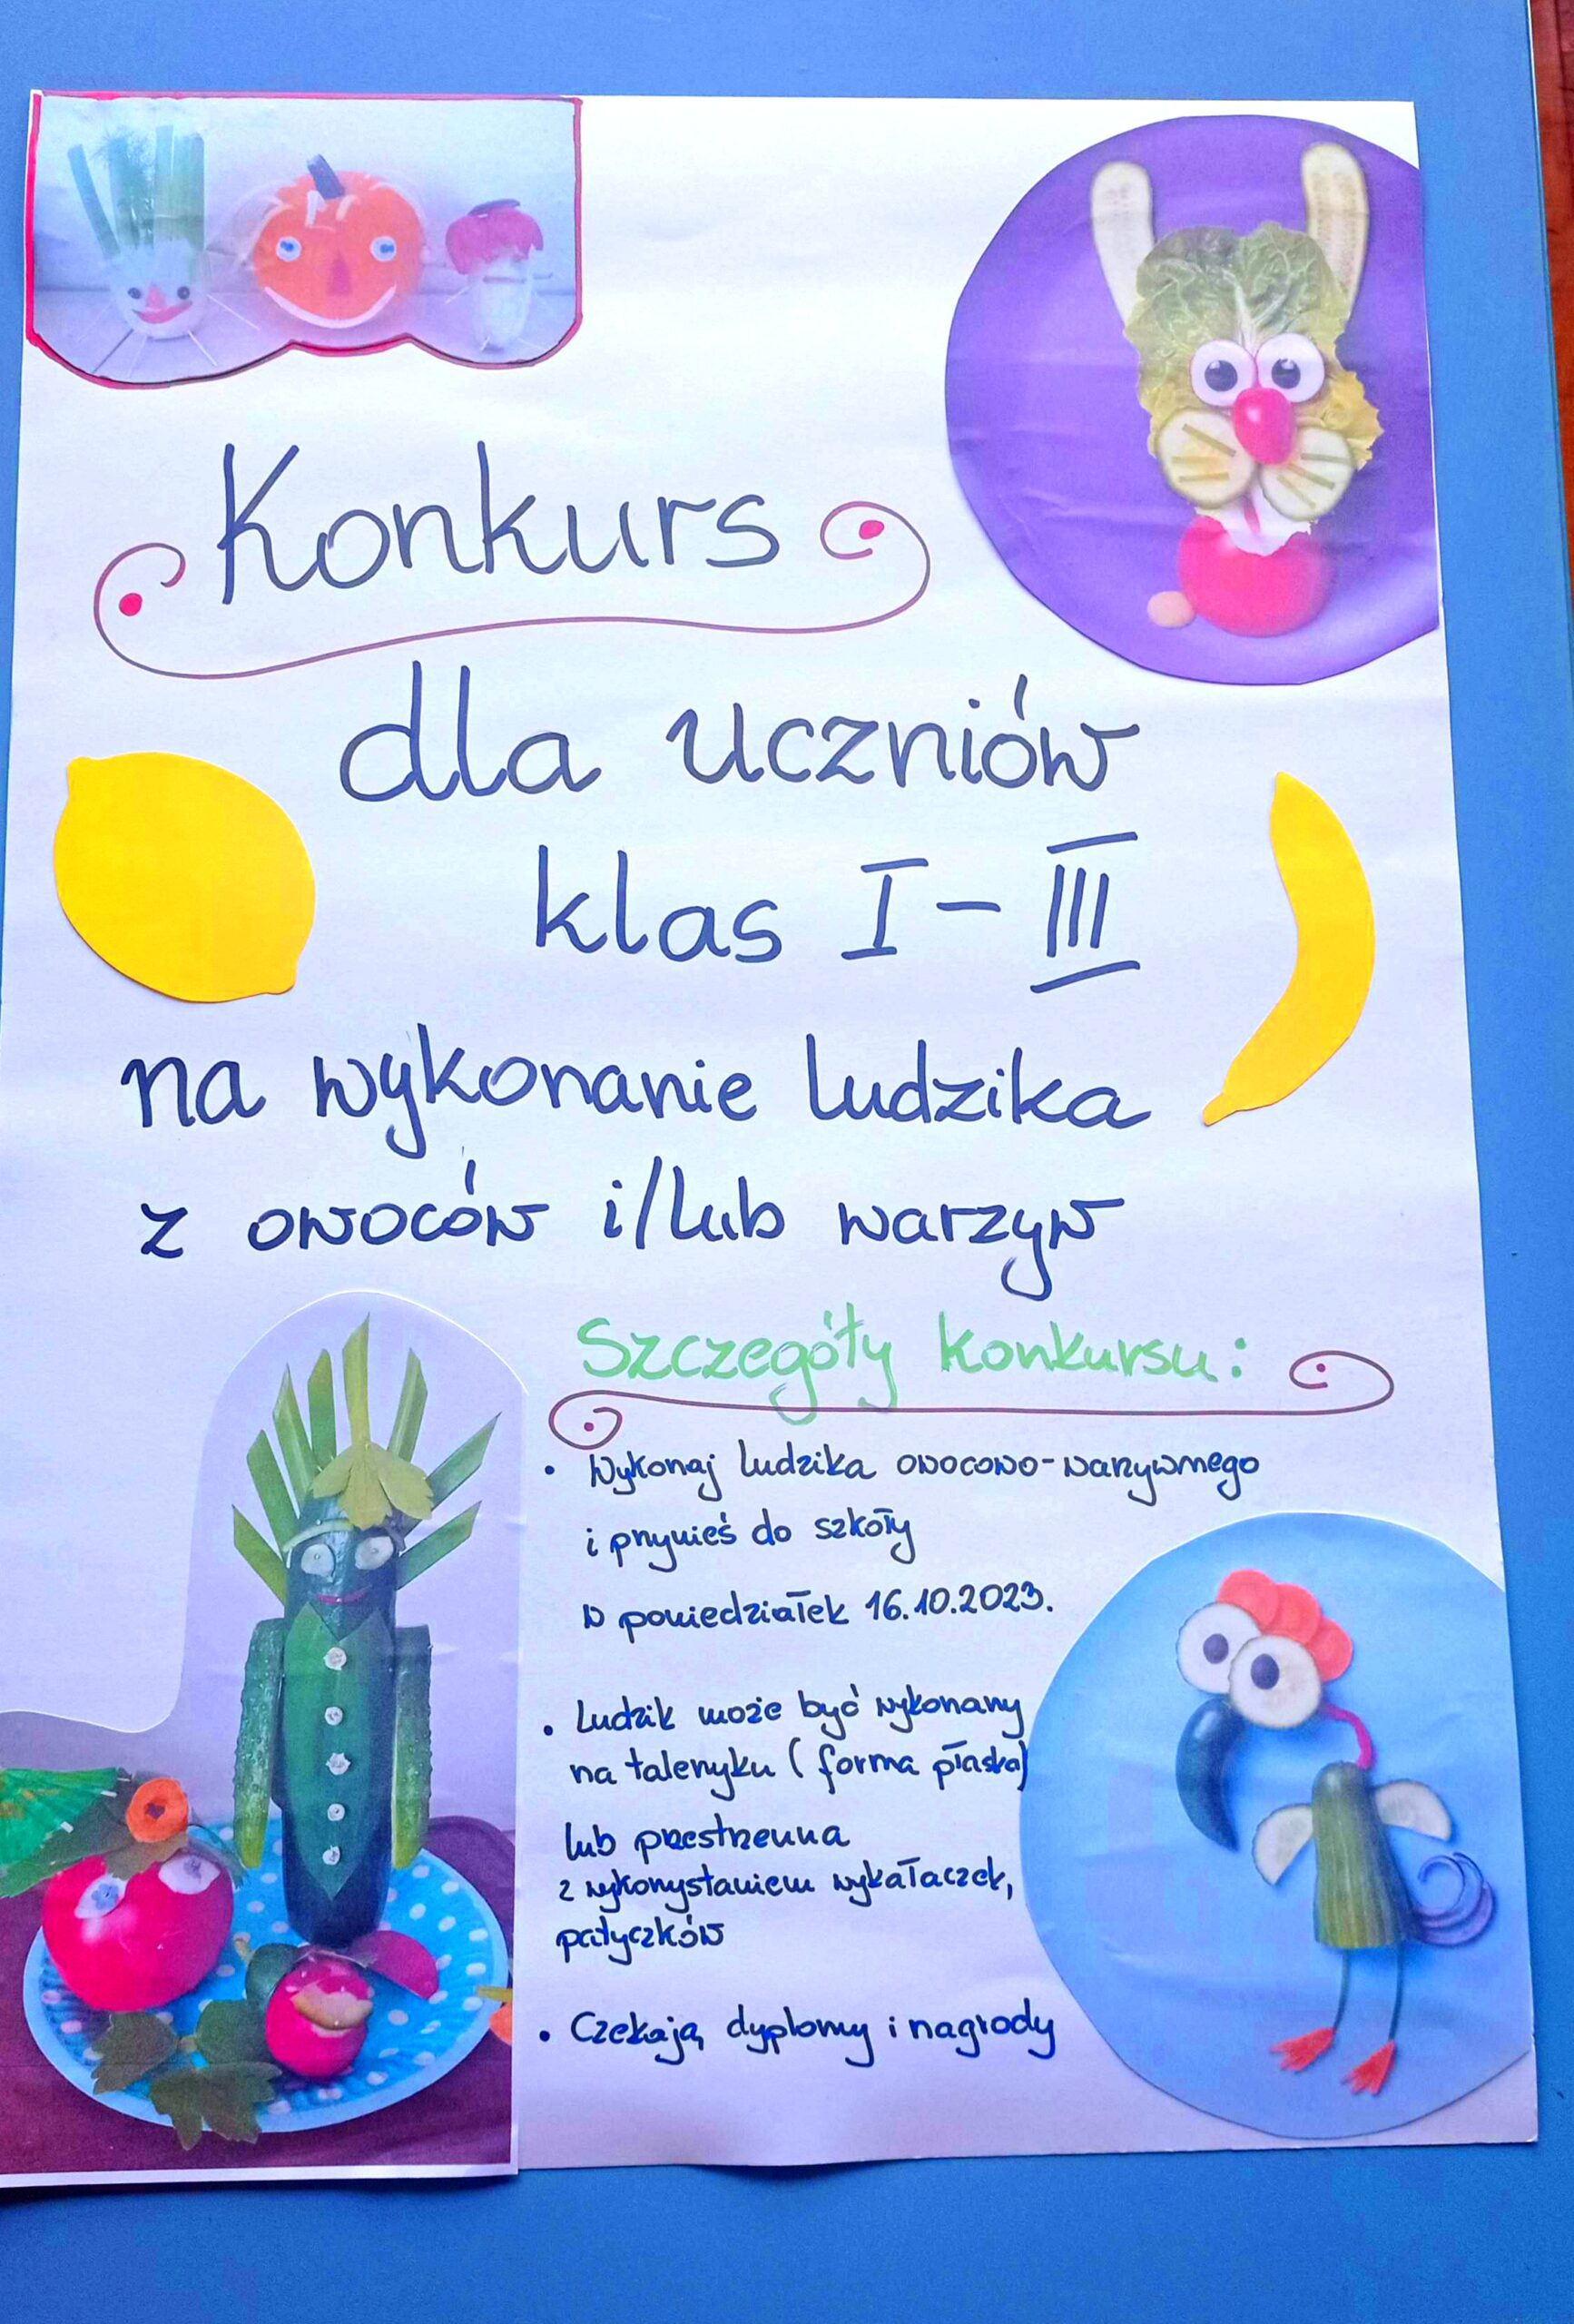 Konkurs
dla uczniów
klas I-III
na wykonanie ludzika
z owoców i/lub warzyw
Szczegóły konkursu:
• Wykonaj ludzika owocowo-warzywnego
i przynieś do szkoły
w poniedziałek 16.10.2023.
• Ludzik może być wykonany
na talerzyku (forma płaska)
lub przestrzenna
z wykorzystaniem wykałaczek,
patyczków
• Czekają dyplomy i nagrody